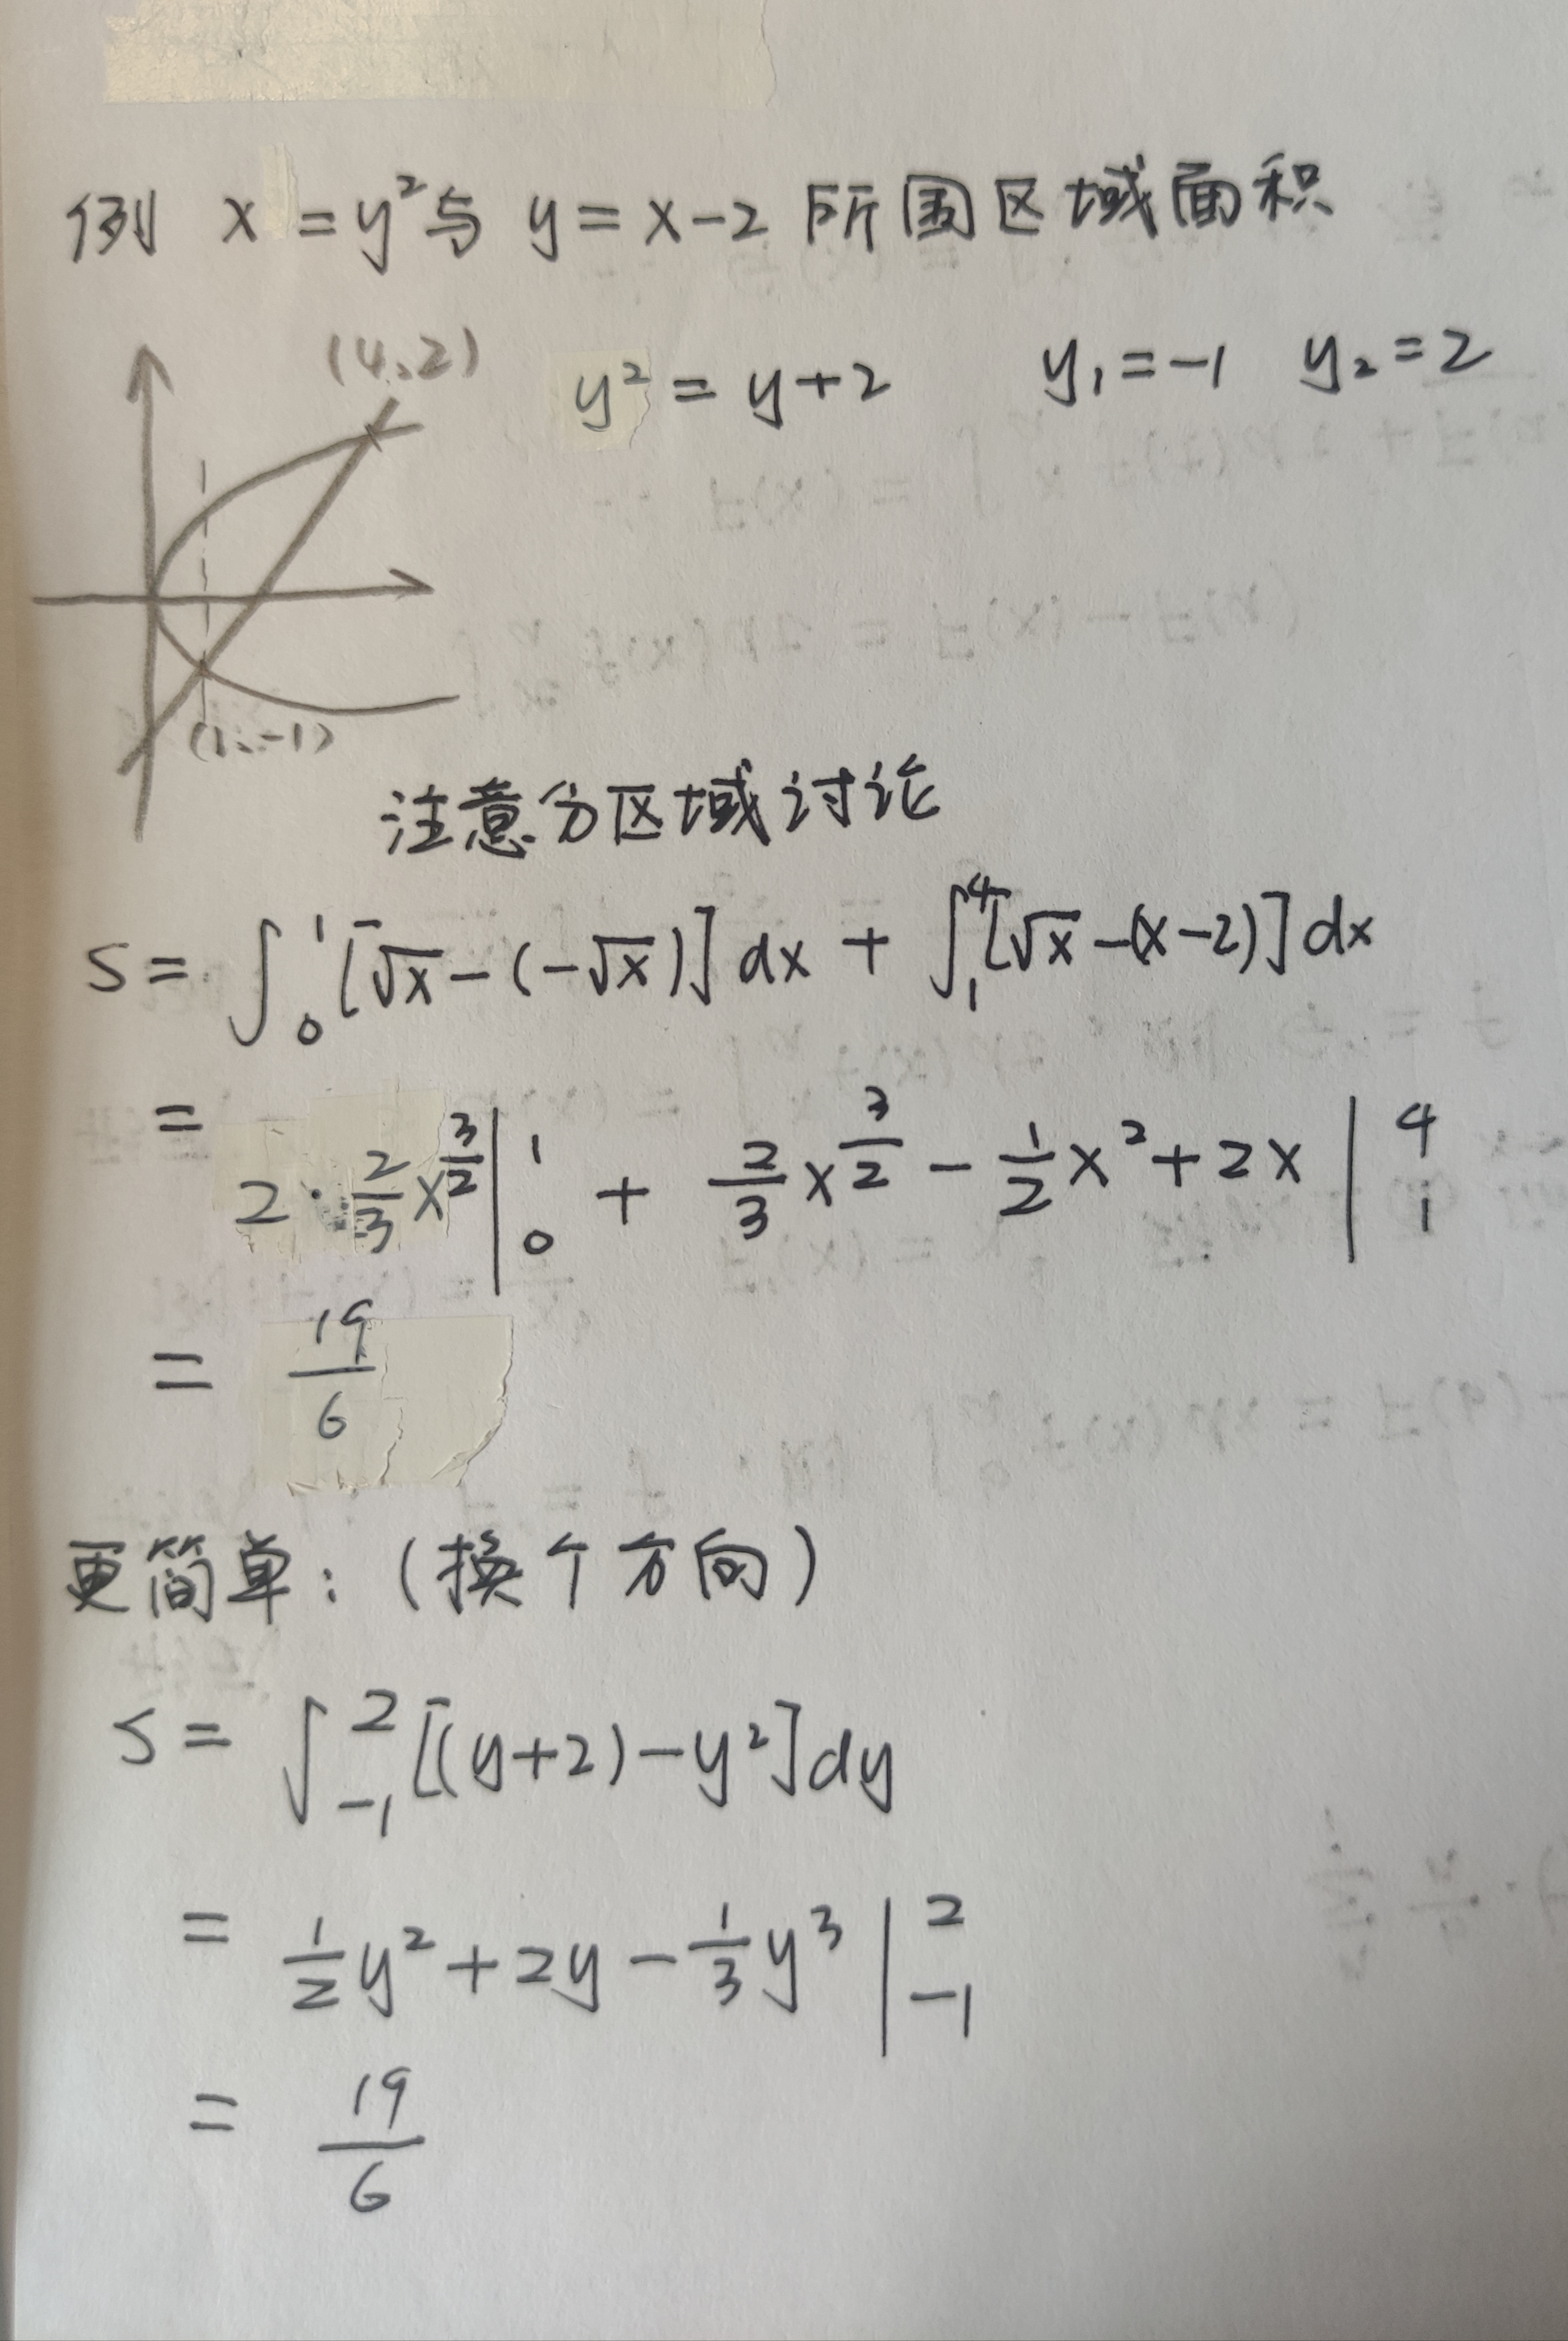 例 x = y² 与 y = x-2 所围区域面积
(4,2)
y² = y+2 y₁ = -1 y₂ = 2
(1,-1)
注意分区域讨论
S = ∫₀¹ [√x - (-√x)] dx + ∫₁⁴ [√x - (x-2)] dx
= 2 · 2/3 x^(3/2) |₀¹ + 2/3 x^(3/2) - 1/2 x² + 2x |₁⁴
= 19/6
更简单:(换个方向)
S = ∫₋₁² [(y+2) - y²] dy
= 1/2 y² + 2y - 1/3 y³ |₋₁²
= 19/6